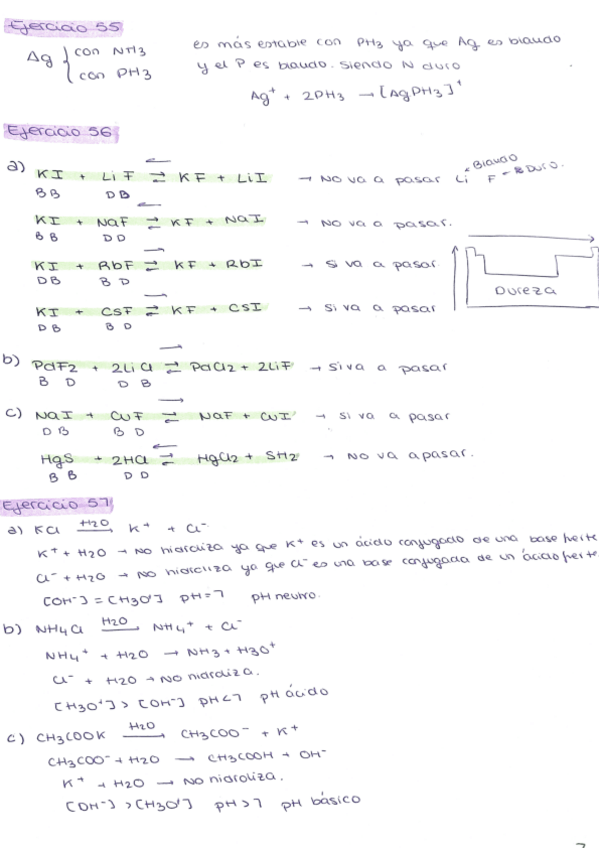 Ejercicio 55
Ag { con NH3
con PH3
es más estable con PH3 ya que Ag es blando
y el P es blando. Siendo N duro
Ag⁺ + 2PH3 → [AgPH3]⁺
Ejercicio 56
a) KI + LiF ⇌ KF + LiI → No va a pasar Li Blando F → Duro.
B B D B
KI + NaF ⇌ KF + NaI → No va a pasar.
B B D D
KI + RbF ⇌ KF + RbI → Si va a pasar
D B B D
Dureza
KI + CsF ⇌ KF + CsI → Si va a pasar
D B B D
b) PdF2 + 2LiCl ⇌ PdCl2 + 2LiF → Si va a pasar
B D D B
c) NaI + CuF ⇌ NaF + CuI → Si va a pasar
D B B D
HgS + 2HCl ⇌ HgCl2 + SH2 → No va a pasar.
B B D D
Ejercicio 57
a) KCl H2O→ K⁺ + Cl⁻
K⁺ + H2O → No hidroliza ya que K⁺ es un ácido conjugado de una base fuerte
Cl⁻ + H2O → No hidroliza ya que Cl⁻ es una base conjugada de un ácido fuerte
[OH⁻] = [H3O⁺] pH=7 pH neutro.
b) NH4Cl H2O→ NH4⁺ + Cl⁻
NH4⁺ + H2O → NH3 + H3O⁺
Cl⁻ + H2O → No hidroliza.
[H3O⁺] > [OH⁻] pH<7 pH ácido
c) CH3COOK H2O→ CH3COO⁻ + K⁺
CH3COO⁻ + H2O → CH3COOH + OH⁻
K⁺ + H2O → No hidroliza.
[OH⁻] > [H3O⁺] pH>7 pH básico